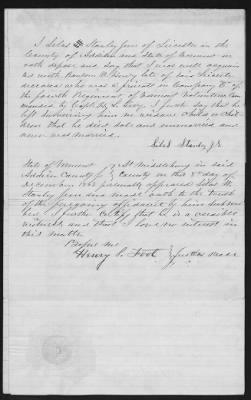 I Silas Stanley Jun of Leicester in the
County of Addison and State of Vermont on
oath depose and say that I was well acquain
ted with B Henry late of said Leicester
deceased who was a private in Company
the fourth Regiment of Vermont Volunteers Com
manded by Capt. I further say that he
left surviving him no widow Child or Chil
dren that he died sole and unmarried and
never was married.
Silas Stanley Jr
State of Vermont } At Middlebury in said
Addison County } County on this 8th day of
December personally appeared Silas
Stanley Jun and made oath to the truth
of the foregoing affidavit by him subscri
bed. I further Certify that he is a credible
witness and that I have no interest in
this matter
Before me
Henry S. Foot } Justice Peace